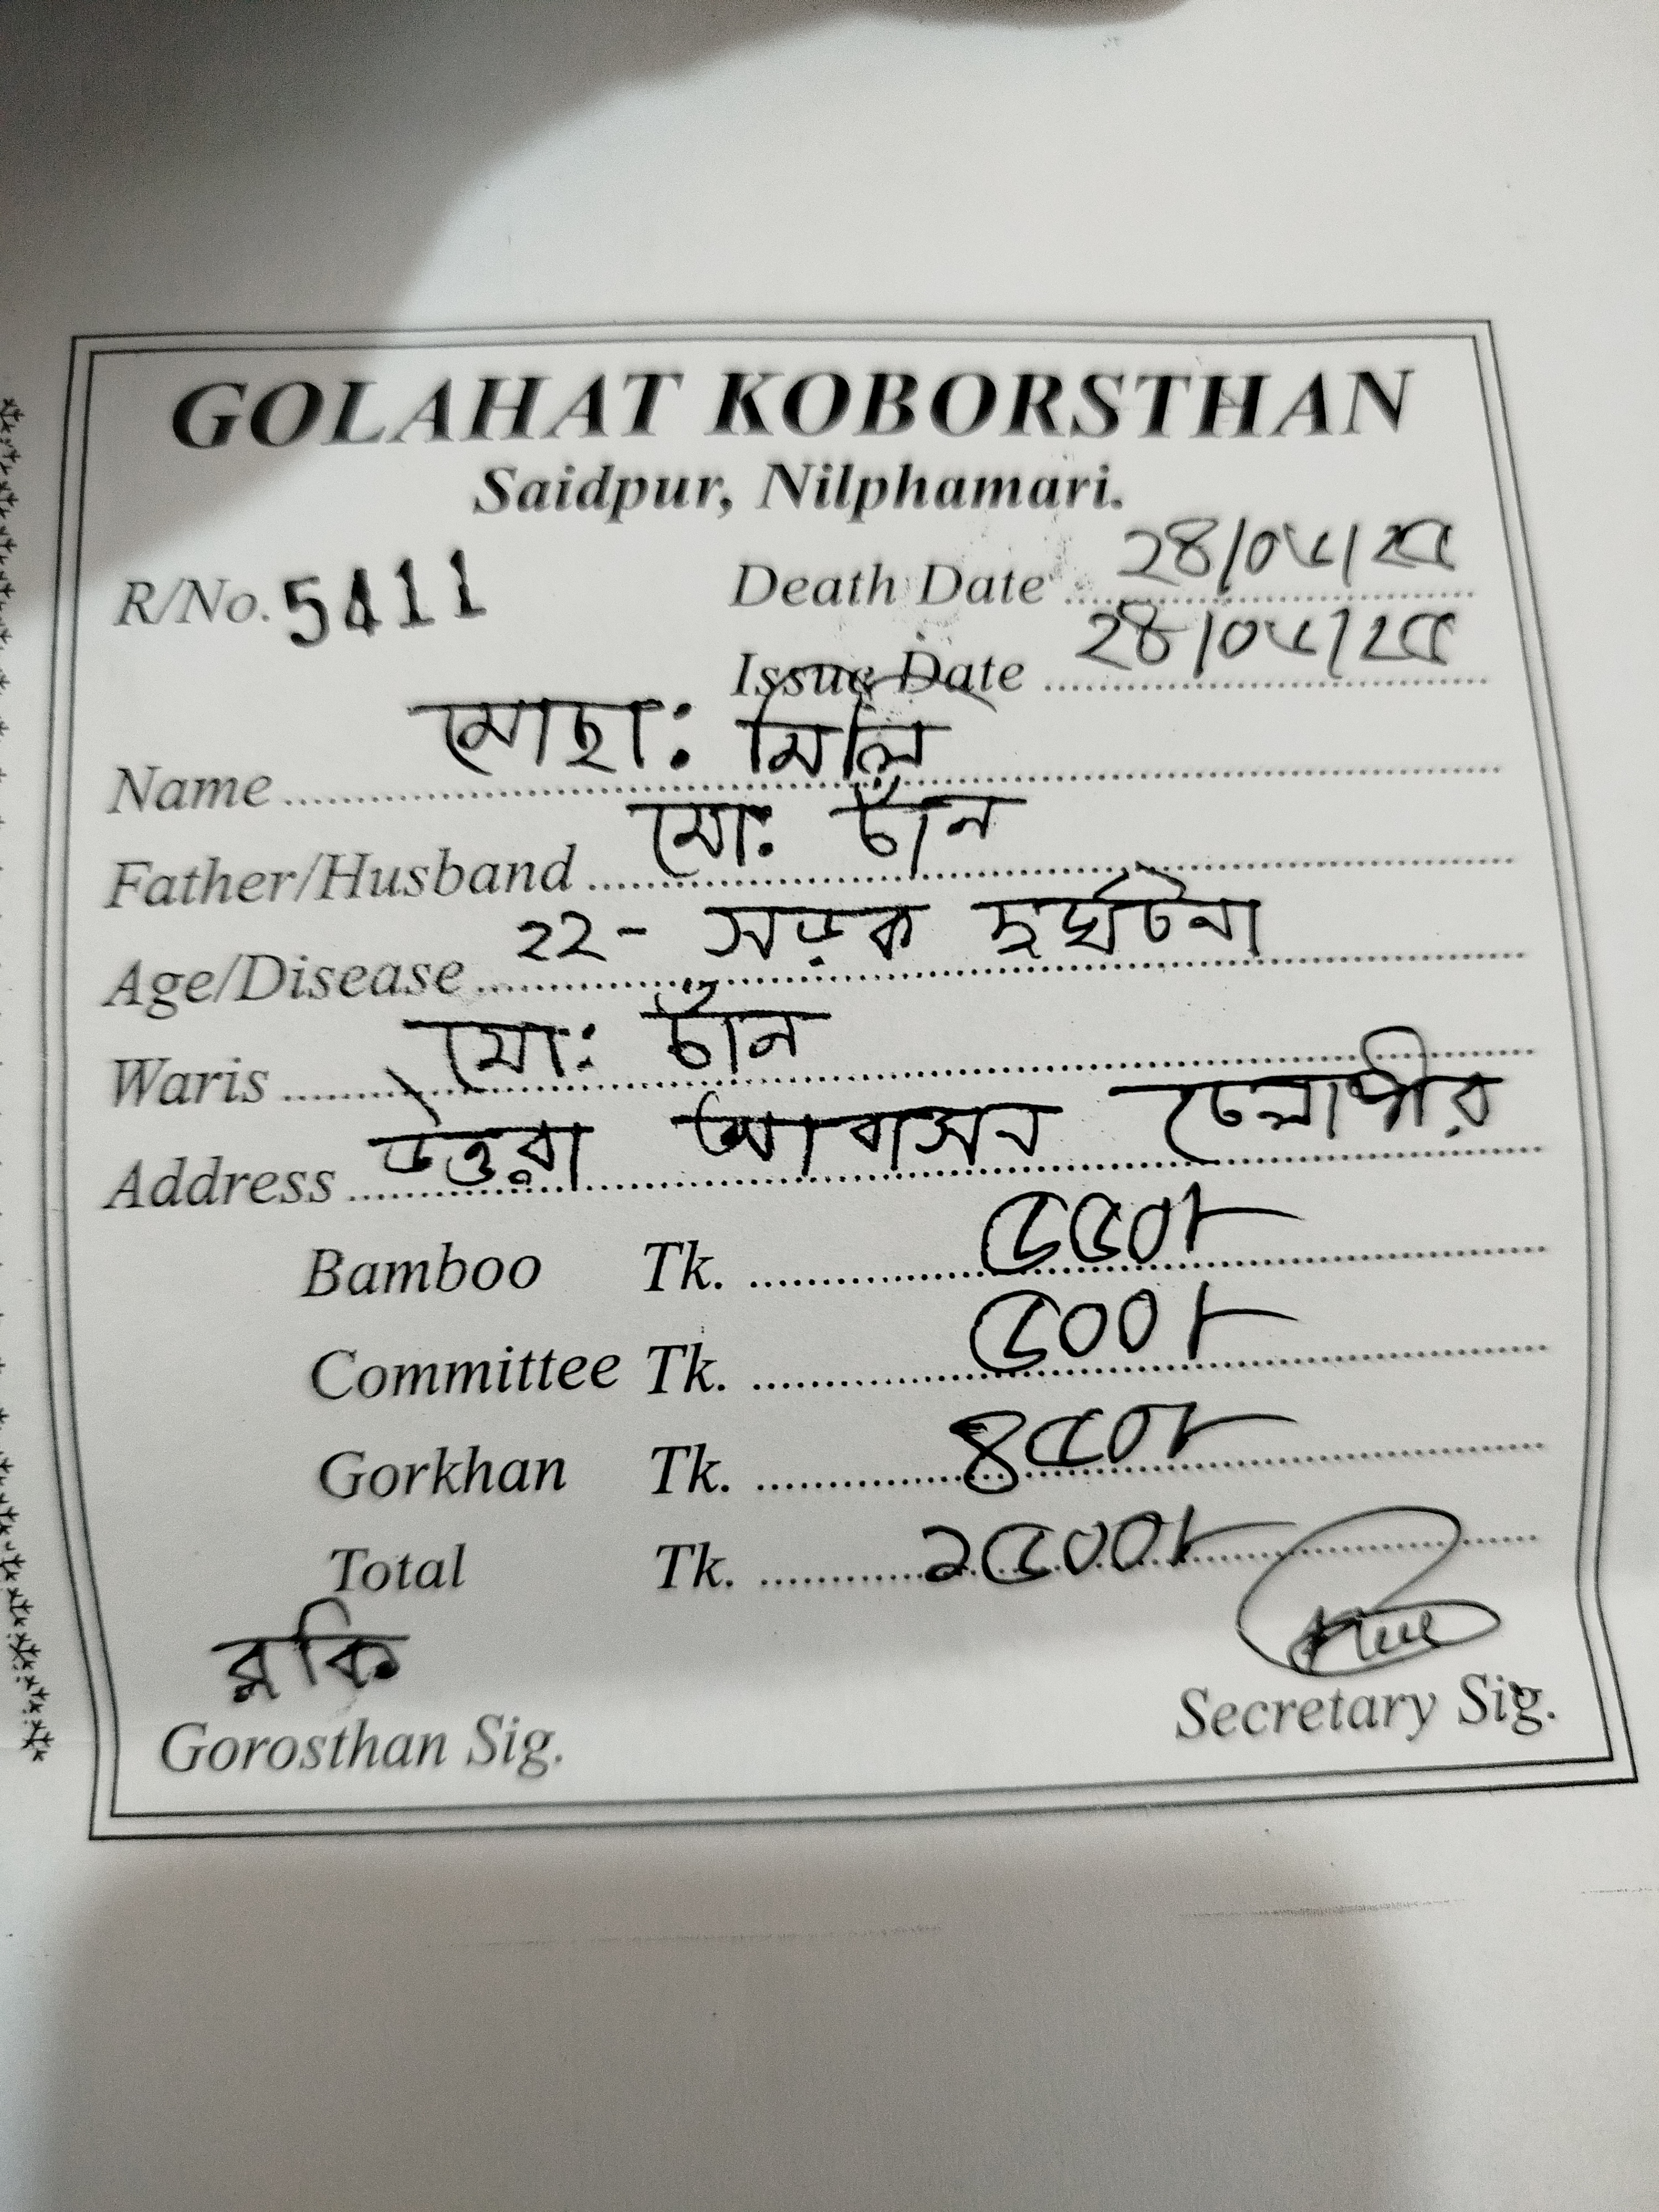 GOLAHAT KOBORSTHAN
Saidpur, Nilphamari.
R/No. 5411
Death Date ২৪/০৮/২৫
Issue Date ২৪/০৮/২৫
Name মোছা: মিলি
Father/Husband মো: চাঁন
Age/Disease ২২- সড়ক দুর্ঘটনা
Waris মো: চাঁন
Address উত্তরা আবাসন
Bamboo Tk. ৫৫০/-
Committee Tk. ৫০০/-
Gorkhan Tk. ৪৫০/-
Total Tk. ১৫০০/-
রকি
Gorosthan Sig.
Secretary Sig.